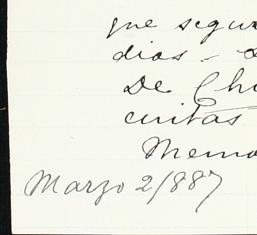 que segur
dias - 
De Ch
cuitas
Memo
Marzo 2/887